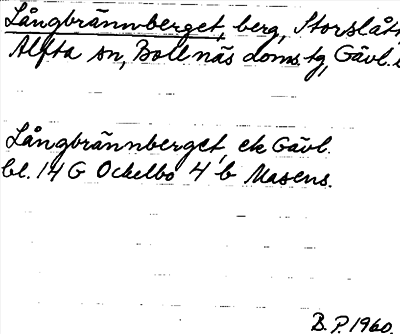 Långbrännberget, berg, Storslåt
Alfta sn, Bollnäs doms.tg, Gävl.
Långbrännberget, ek Gävl.
bl. 14 G Ockelbo 4 b Masens.
B.P. 1960.